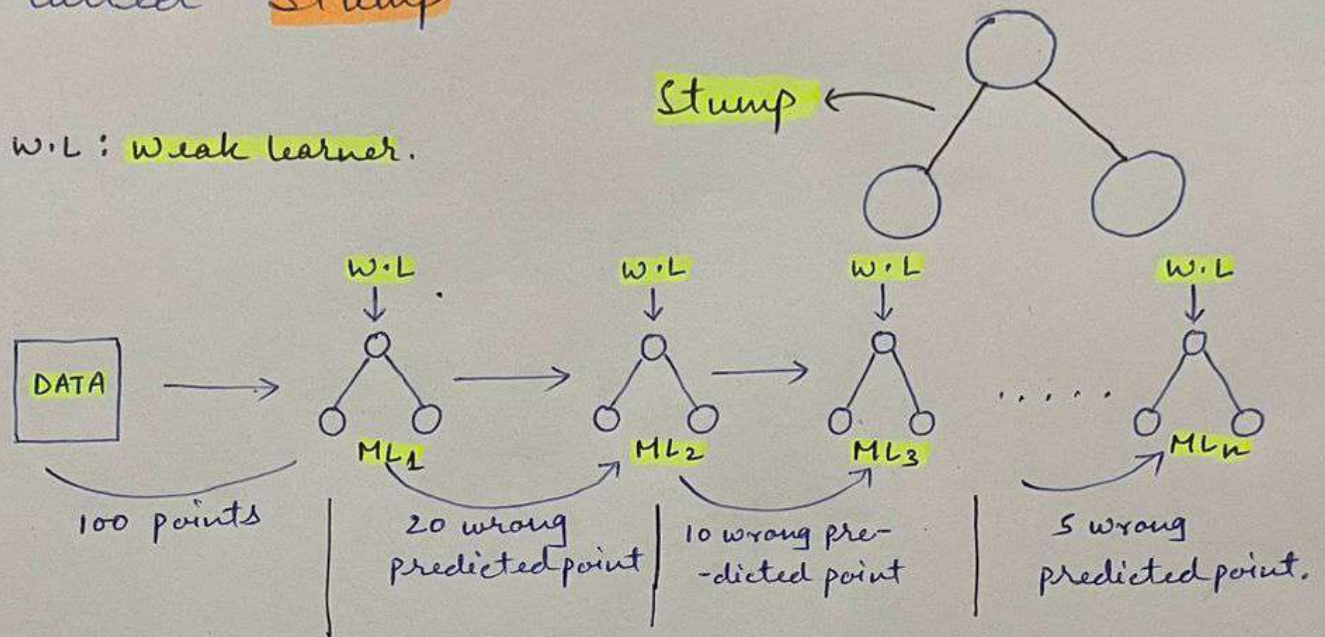 called Stump
Stump
W.L : Weak learner.
W.L W.L W.L W.L
DATA
ML1 ML2 ML3 ..... MLn
100 points
20 wrong
predicted point
10 wrong pre-
-dicted point
5 wrong
predicted point.